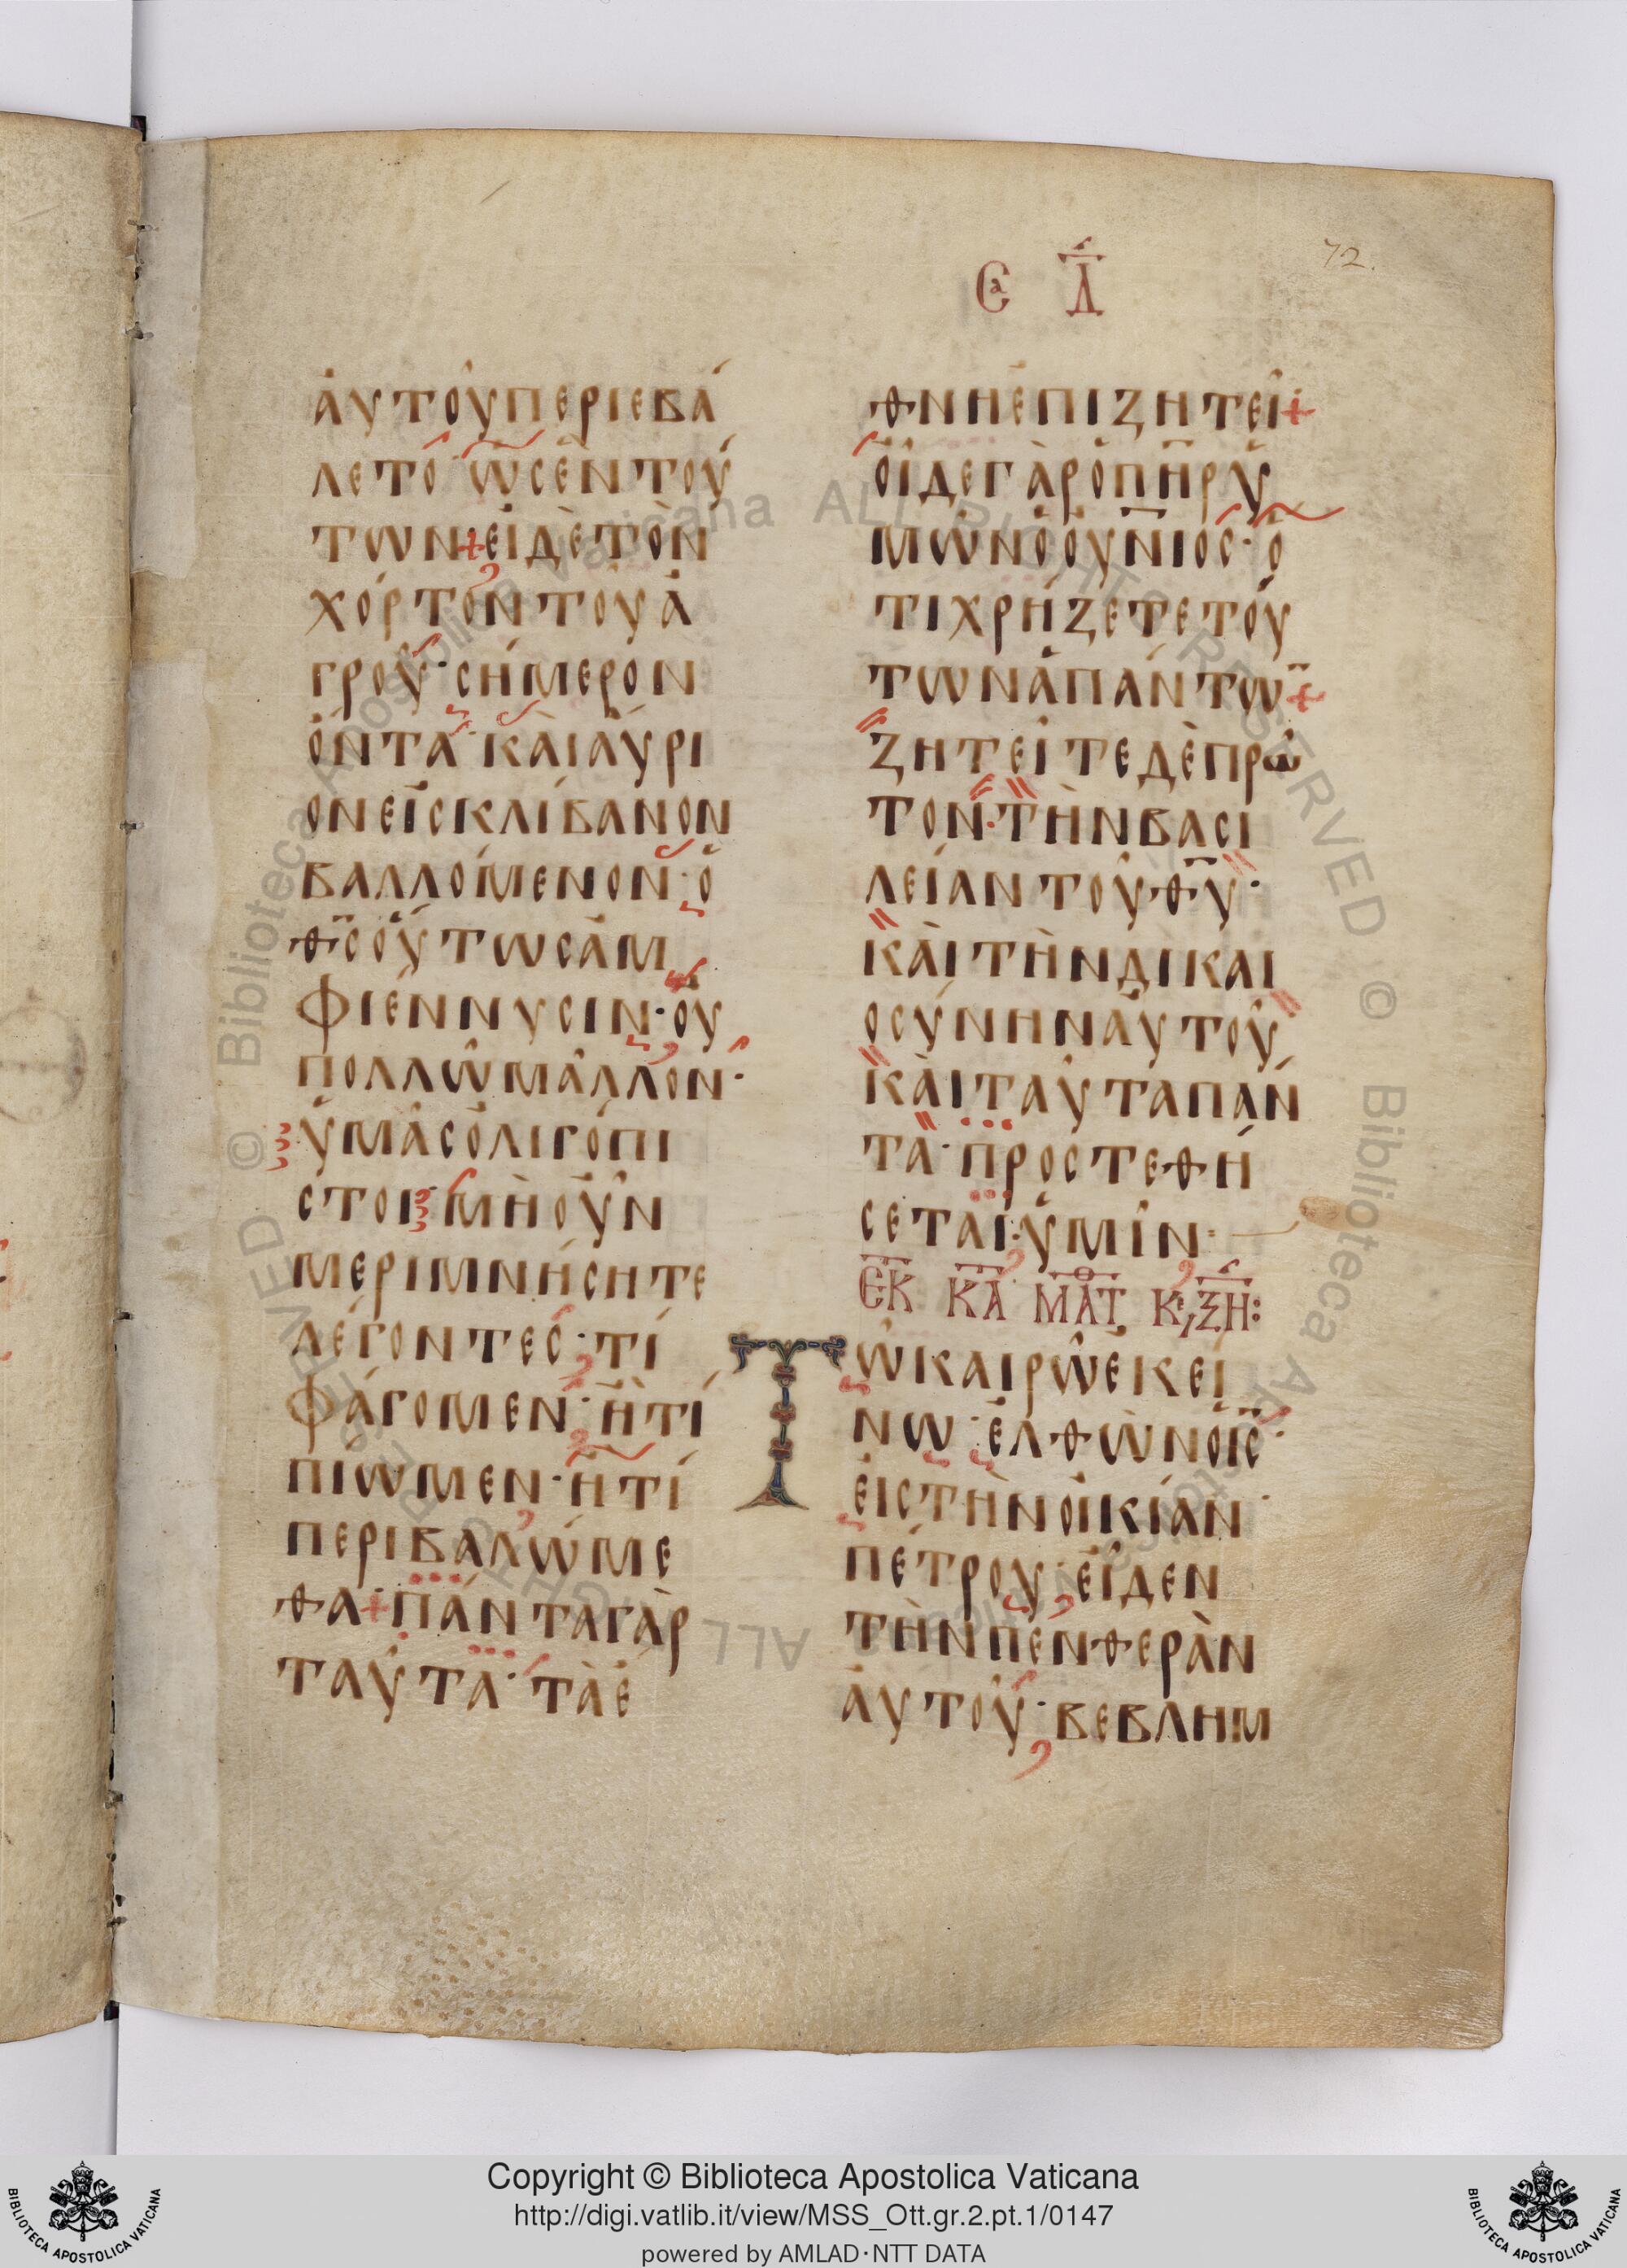 72.
Ϲα Δ
ἀυτοῦ περιεβά
λετο ὡς ἐν τού
των + εἰ δὲ τὸν
χόρτον τοῦ ἀ
γροῦ · σήμερον
ὄντα · κὰι ἀύρι
ον εἰς κλίβανον
βαλλόμενον · ὁ
θ̅ς̅ ὅυτως ἀμ
φιέννυσιν · ὀυ
πολλῶ μᾶλλον ·
ὑμᾶς ὀλιγόπι
στοι · μὴ ὀῦν
μεριμνήσητε
λέγοντες · τί
φάγομεν · ἢ τί
πίωμεν · ἢ τί
περιβαλώμε
θα + πάντα γὰρ
ταῦτα · τὰ ἔ
θνη ἐπιζητεῖ +
ὀῖδε γὰρ ὁ π̅η̅ρ̅ ὑ
μῶν ὁ ὀυ̅ν̅ιος · ὅ
τι χρήζετε τού
των ἁπάντω̅ +
ζητεῖτε δὲ πρῶ
τον · τὴν βασι
λείαν τοῦ θ̅υ̅ ·
κὰι τὴν δικαι
οσύνην ἀυτοῦ
κὰι ταῦτα πάν
τα · προστεθή
σεται · ὑμῖν ·
ΕΚ ΚΑ ΜΑΤ Κ, ΞΗ :
Τῶ καιρῶ ἐκεί
νω · ἐλθὼν ὁ ι̅ς̅ ·
εἰς τὴν οἰκίαν ·
πέτρου · εἶδεν
τὴν πενθερὰν
ἀυτοῦ · βεβλημ
Copyright © Biblioteca Apostolica Vaticana
http://digi.vatlib.it/view/MSS_Ott.gr.2.pt.1/0147
powered by AMLAD·NTT DATA
BIBLIOTECA APOSTOLICA VATICANA
BIBLIOTECA APOSTOLICA VATICANA